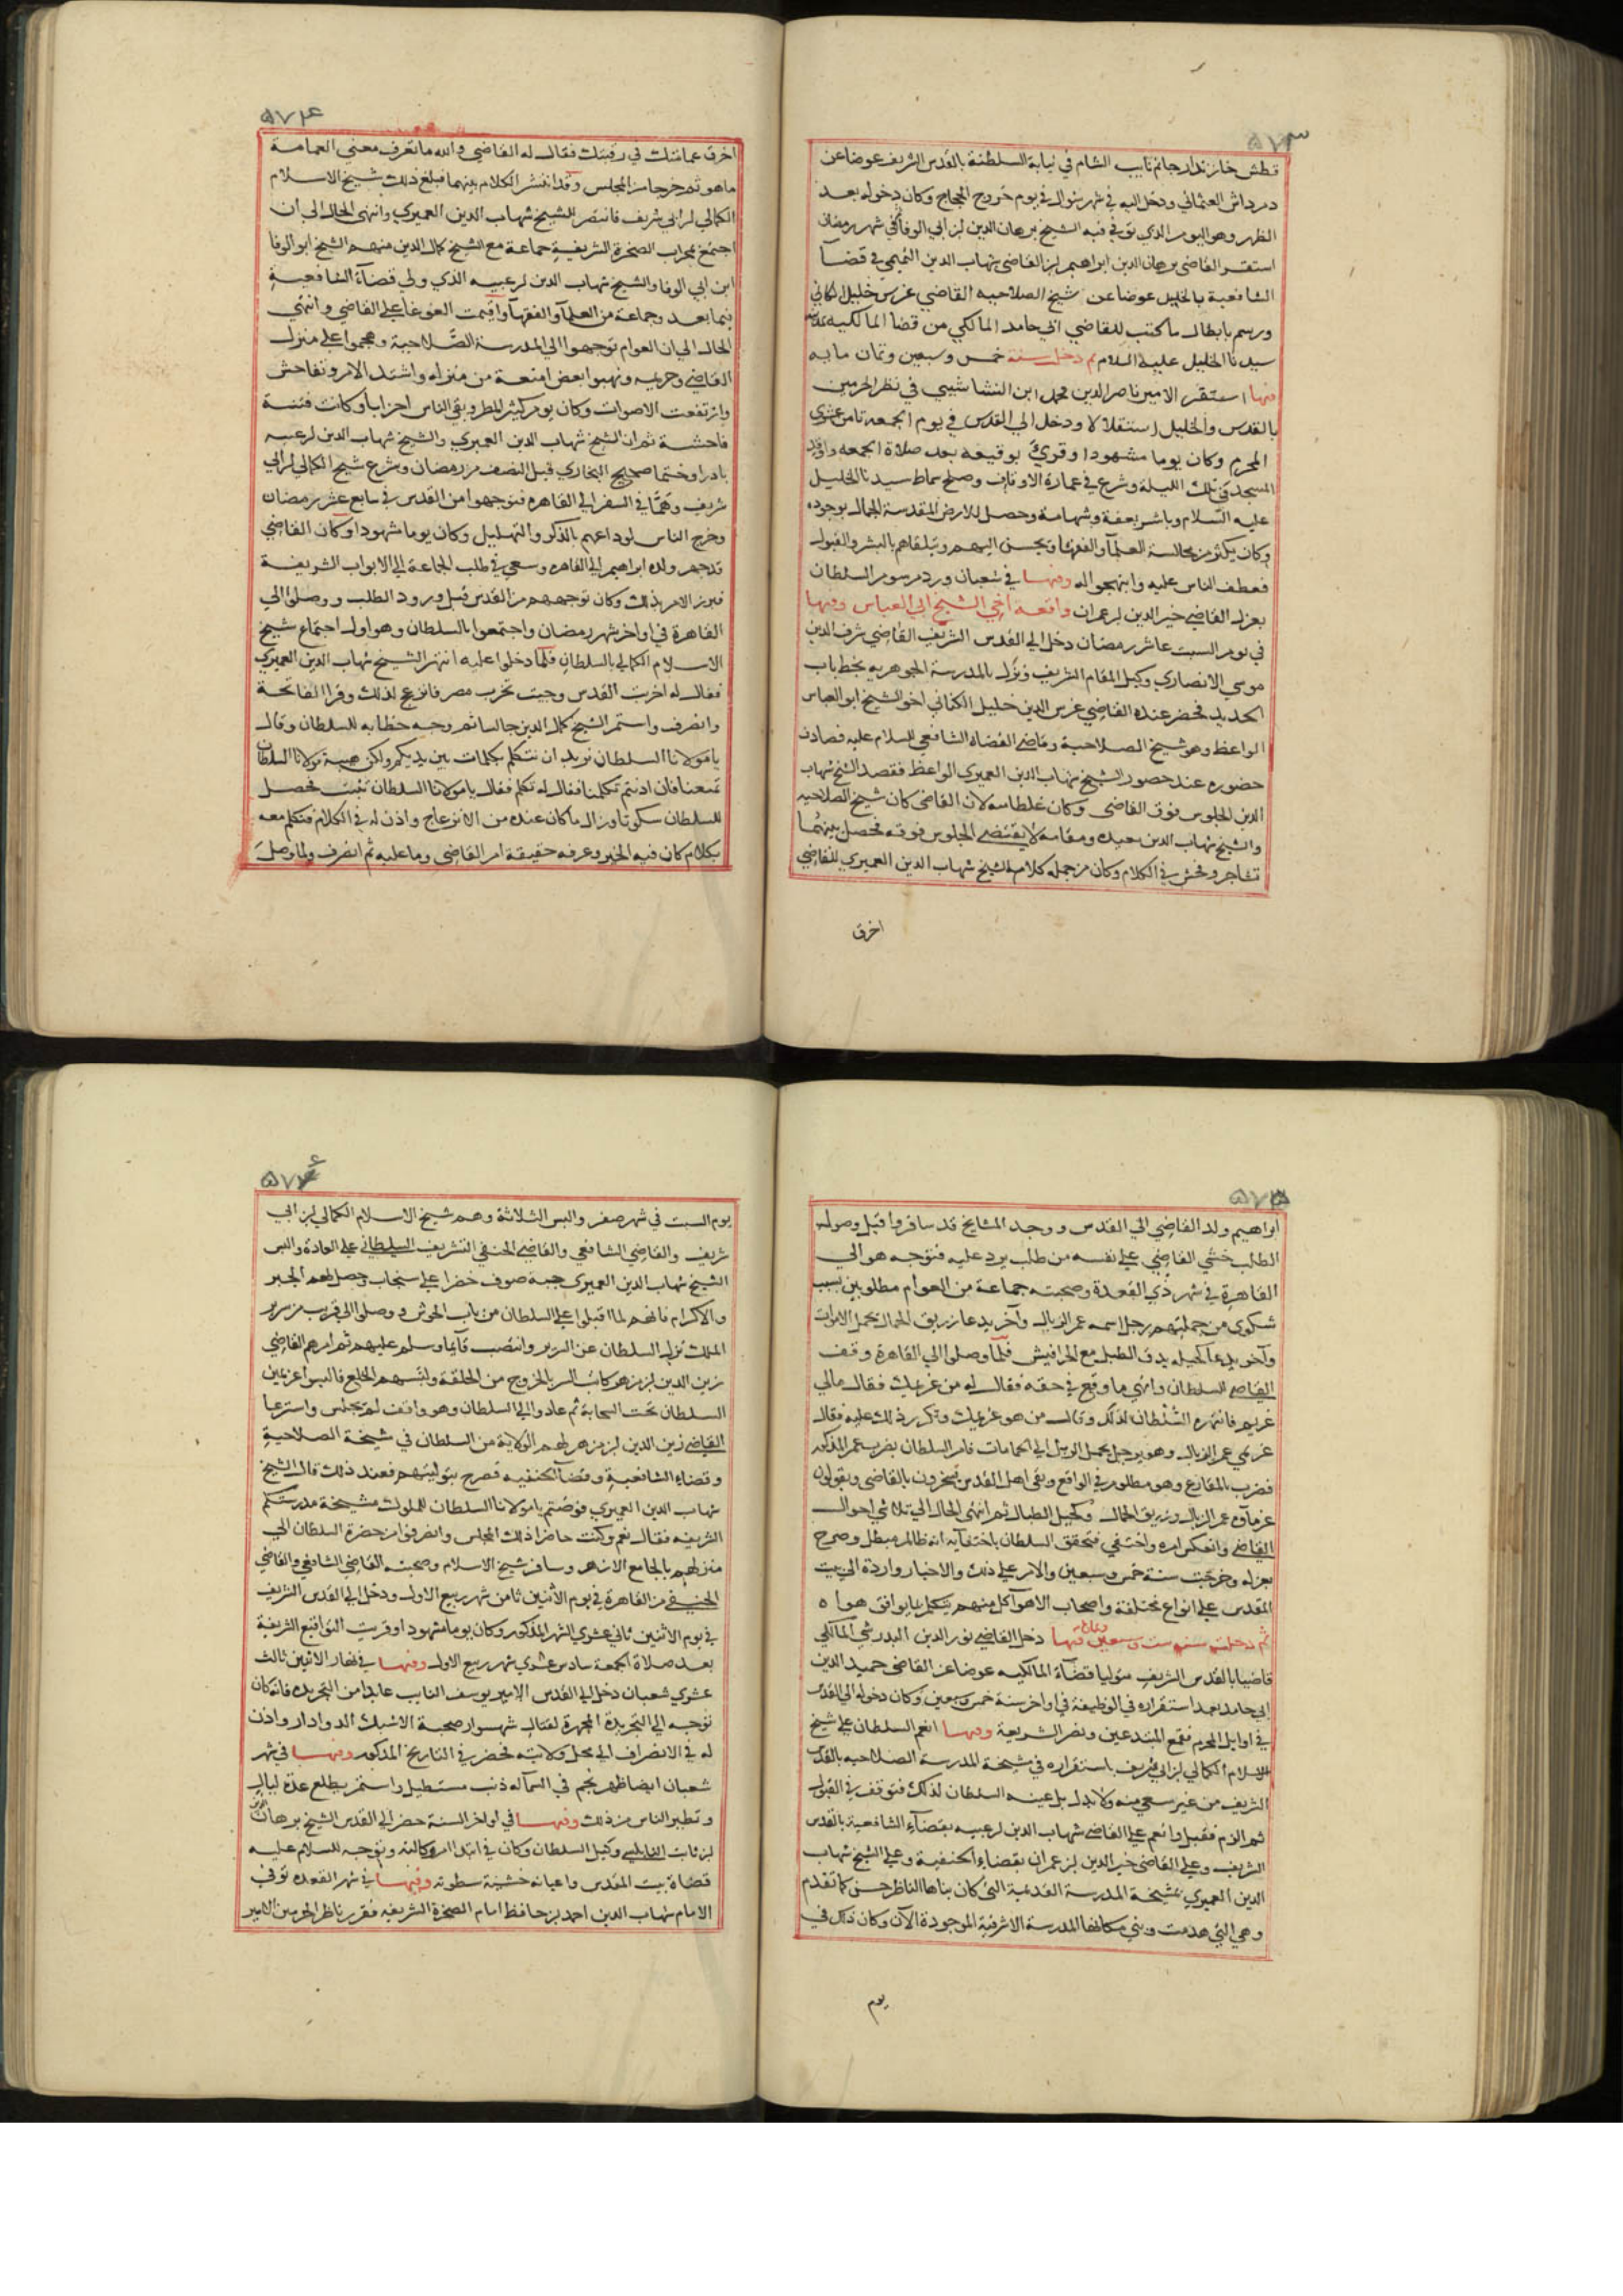 ٥٧٣
قطش خازندار جانم نايب الشام في نيابة السلطنة بالقدس الشريف عوضا عن
دمرداش العثماني ودخل اليه في شهر شوال في يوم خروج الحجاج وكان دخوله بعد
الظهر وهو اليوم الذي توفي فيه الشيخ برهان الدين ابن ابي الوفا وفي شهر رمضان
استقر القاضي برهان الدين ابراهيم ابن القاضي شهاب الدين التميمي في قضآ
الشافعية بالخليل عوضا عن شيخ الصلاحيه القاضي غرس خليل الكناني
ورسم بابطال ما كتب للقاضي ابي حامد المالكي من قضا المالكيه
سيدنا الخليل عليه السلام ثم دخل سنة خمس وسبعين وثمان مايه
فيها استقر الامير ناصر الدين محمد ابن النشاشيبي في نظر الحرمين
بالقدس والخليل استقلالا ودخل الي القدس في يوم الجمعه ثامن عشري
المحرم وكان يوما مشهودا وقري توقيعه بعد صلاة الجمعه واوقد
المسجد في تلك الليلة وشرع في عمارة الاوقاف وصلح سماط سيدنا الخليل
عليه السلام وباشر بعفة وشهامة وحصل للارض المقدسة الجمال بوجوده
وكان يكثر من مجالسة العلمآ والفقهآ ويحسن اليهم ويتلقاهم بالبشر والقبول
فعطف الناس عليه وابتهجوا له وفيها في شعبان ورد مرسوم السلطان
بعزل القاضي خير الدين ابن عمران واقعة اخي الشيخ ابي العباس وفيها
في يوم السبت عاشر رمضان دخل الي القدس الشريف القاضي شرف الدين
موسي الانصاري وكيل المقام الشريف ونزل بالمدرسة الجوهريه بخط باب
الحديد فحضر عنده القاضي غرس الدين خليل الكناني اخو الشيخ ابو العباس
الواعظ وهو شيخ الصلاحية وقاضي القضاه الشافعي للسلام عليه فصادف
حضوره عند حضور الشيخ شهاب الدين العميري الواعظ فقصد الشيخ شهاب
الدين الجلوس فوق القاضي وكان غلطا منه لان القاضي كان شيخ الصلاحيه
والشيخ شهاب الدين معيده ومقامه لا يقتضي الجلوس فوقه فحصل بينهما
تشاجر وفحش في الكلام وكان من جملة كلام الشيخ شهاب الدين العميري للقاضي
اخرق
٥٧٤
اخرق عمامتك في رقبتك فقال له القاضي والله ما تعرف معني العمامة
ما هو ثم خرجا من المجلس وقد انتشر الكلام بينهما فبلغ ذلك شيخ الاسلام
الكمالي ابن ابي شريف فانتصر للشيخ شهاب الدين العميري وانتهى الحال الي ان
اجتمع بمحراب الصخرة الشريفة جماعة مع الشيخ كمال الدين منهم الشيخ ابو الوفا
ابن ابي الوفا والشيخ شهاب الدين ابن عبيه الذي ولي قضآء الشافعية
فيما بعد وجماعة من العلمآ والفقهآ واقيمت الغوغا علي القاضي وانتهي
الحال الي ان العوام توجهوا الي المدرسة الصلاحية وهجموا علي منزل
القاضي وحريمه ونهبوا بعض امتعة من منزله واشتد الامر وتفاحش
وارتفعت الاصوات وكان يوم كثير المطر وبقي الناس احزابا وكانت فتنة
فاحشة ثم ان الشيخ شهاب الدين العميري والشيخ شهاب الدين ابن عبيه
بادرا وختما صحيح البخاري قبل النصف من رمضان وشرع شيخ الكمالي ابن ابي
شريف وهمّا في السفر الي القاهره فتوجهوا من القدس في سابع عشر رمضان
وخرج الناس لوداعهم بالذكر والتهليل وكان يوما مشهودا وكان القاضي
قد جهز ولده ابراهيم الي القاهره وسعي في طلب الجماعة الي الابواب الشريفة
فبرز الامر بذلك وكان توجههم من القدس قبل ورود الطلب ووصلوا الي
القاهرة في اواخر شهر رمضان واجتمعوا بالسلطان وهو اول اجتماع شيخ
الاسلام الكمالي بالسلطان فلما دخلوا عليه انتهر الشيخ شهاب الدين العميري
فقال له اخربت القدس وجيت تخرب مصر فانزعج لذلك وقرا الفاتحة
وانصرف واستمر الشيخ كمال الدين جالسا ثم وجه خطابه للسلطان وقال
يا مولانا السلطان نريد ان نتكلم بكلمات بين يديكم ولكن هيبة مولانا السلطان
تمنعنا فان اذنتم تكلمنا فقال له تكلم فقال يا مولانا السلطان تثبت فحصل
للسلطان سكوتا وزال ما كان عنده من الانزعاج واذن له في الكلام فتكلم معه
بكلام كان فيه الخير وعرفه حقيقة امر القاضي وما عليه ثم انصرف ولما وصل
٥٧٥
ابراهيم ولد القاضي الي القدس ووجد المشايخ قد سافروا قبل وصوله
الطلب خشي القاضي علي نفسه من طلب يرد عليه فتوجه هو الي
القاهرة في شهر ذي القعدة وصحبته جماعة من العوام مطلوبين بسبب
شكوي من جملتهم رجل اسمه عمر الزبال وآخر يدعا زريق الحمال يحمل الاموات
وآخر يدعا كحيله يدق الطبل مع الحرافيش فلما وصلوا الي القاهرة وقف
القاضي للسلطان وانهي ما وقع في حقه فقال له من غريمك فقال مالي
غريم فانتهره السلطان لذلك وقال من هو غريمك وتكرر ذلك عليه فقال
غريمي عمر الزبال وهو رجل يحمل الزبل الي الحمامات فامر السلطان بضرب عمر المذكور
فضرب بالمقارع وهو مظلوم في الواقع وبقي اهل القدس يسخرون بالقاضي ويقولون
غرمآوه عمر الزبال وزريق الحمال وكحيل الطبال ثم انتهى الحال الي تلاشي احوال
القاضي وانعكس امره واختفي فتحقق السلطان باختفآيه انه ظالم مبطل وصرح
بعزله وخرجت سنة خمس وسبعين والامر علي ذلك والاخبار واردة الي بيت
المقدس علي انواع مختلفة واصحاب الاهوآ كل منهم يتكلم بما يوافق هواه
ثم دخلت سنه ست وسبعين وثمانمايه فيها دخل القاضي نور الدين البدرشي المالكي
قاضيا بالقدس الشريف متوليا قضآء المالكيه عوضا عن القاضي حميد الدين
ابي حامد بعد استقراره في الوظيفة في اواخر سنة خمس وسبعين وكان دخوله الي القدس
في اوايل المحرم فقمع المبتدعين ونصر الشريعة وفيها انعم السلطان علي شيخ
الاسلام الكمالي ابن ابي شريف باستقراره في مشيخة المدرسة الصلاحيه بالقدس
الشريف من غير سعي منه ولا بذل بل عينه السلطان لذلك فتوقف في القبول
ثم الزم فقبل وانعم علي القاضي شهاب الدين ابن عبيه بقضآء الشافعية بالقدس
الشريف وعلي القاضي خير الدين ابن عمران بقضاء الحنفية وعلي الشيخ شهاب
الدين العميري بمشيخة المدرسة القديمة التي كان بناها الناظر حسن كما تقدم
وهي التي هدمت وبني مكانها المدرسة الاشرفية الموجودة الآن وكان ذلك في
يوم
٥٧٦
يوم السبت في شهر صفر والبس الثلاثة وهم شيخ الاسلام الكمالي ابن ابي
شريف والقاضي الشافعي والقاضي الحنفي التشريف السلطاني علي العادة والبس
الشيخ شهاب الدين العميري جبة صوف خضرا علي سنجاب وحصل لهم الجبر
والاكرام فانهم لما اقبلوا علي السلطان من باب الحوش ووصلوا الي قريب من سرير
الملك نزل السلطان عن السرير وانتصب قآيما وسلم عليهم ثم امرهم القاضي
زين الدين ابن مزهر كاتب السر بالخروج من الحلقة ولبسهم الخلع فالبسوا عن يمين
السلطان تحت السحابة ثم عادوا الي السلطان وهو واقف لم يجلس واسترعا
القاضي زين الدين ابن مزهر لهم الولاية من السلطان في مشيخة الصلاحية
وقضاء الشافعية وقضآ الحنفيه فصرح بتوليتهم فعند ذلك قال الشيخ
شهاب الدين العميري فوضتم يا مولانا السلطان للملوك مشيخة مدرستكم
الشريفه فقال نعم وكنت حاضرا ذلك المجلس وانصرفوا من حضرة السلطان الي
منزلهم بالجامع الازهر وسافر شيخ الاسلام وصحبته القاضي الشافعي والقاضي
الحنفي من القاهرة في يوم الاثنين ثامن شهر ربيع الاول ودخل الي القدس الشريف
في يوم الاثنين ثاني عشري الشهر المذكور وكان يوما مشهودا وقريت التواقيع الشريفة
بعد صلاة الجمعة سادس عشري شهر ربيع الاول وفيها في نهار الاثنين ثالث
عشري شعبان دخل الي القدس الامير يوسف النايب عايدا من التجريده فانه كان
توجه الي التجريدة المجهزة لقتال شهسوار صحبة الاشبك الدوادار واذن
له في الانصراف الي محل ولايته فحضر في التاريخ المذكور وفيها في شهر
شعبان ايضا ظهر نجم في السمآ له ذنب مستطيل واستمر يطلع عدة ليال
وتطير الناس من ذلك وفيها في اواخر السنة حضر الي القدس الشيخ برهان الدين
ابن ثابت النابلسي وكيل السلطان وكان في ابتدا امر وكالته وتوجه للسلام عليه
قضاة بيت المقدس واعيانه خشية سطوته وفيها في شهر القعده توفي
الامام شهاب الدين احمد بن حافظ امام الصخرة الشريفه فقرر ناظر الحرمين الامير